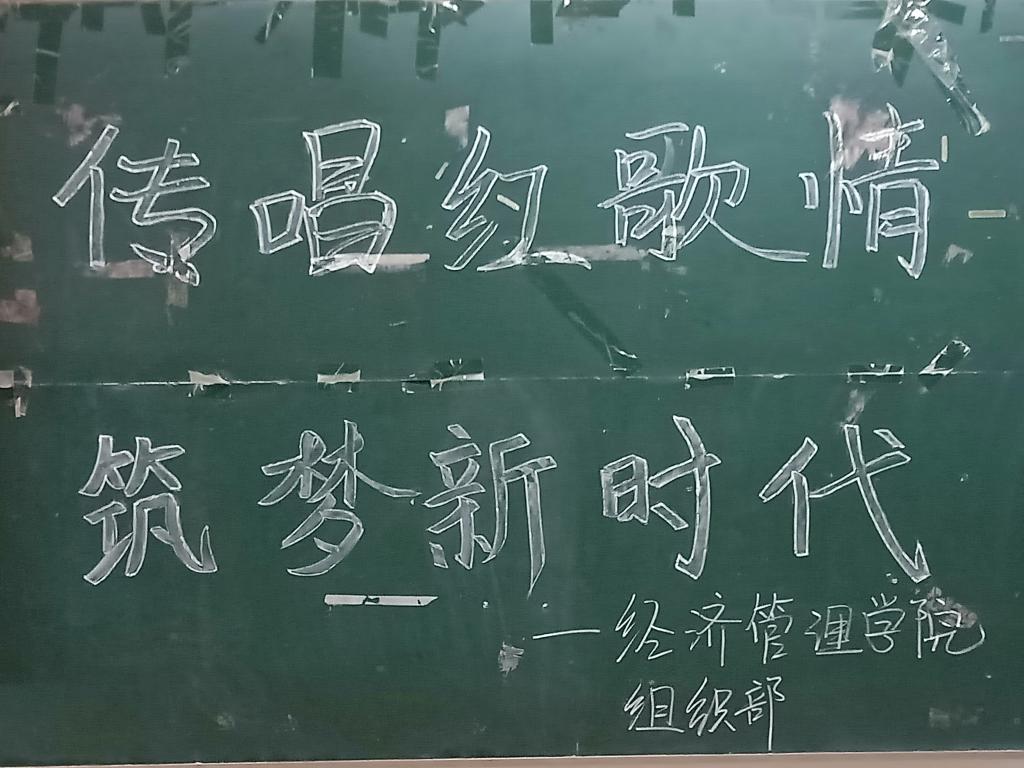 传唱红歌情
筑梦新时代
—经济管理学院
组织部